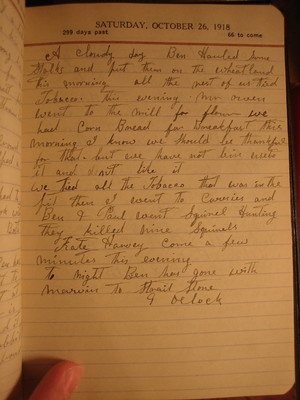 SATURDAY, OCTOBER 26, 1918
299 days past 66 to come
A Cloudy day Ben Hauled some
Stalks and put them on the wheatland
this morning all the rest of us tied
Tobacco. this evening Mr owen
went to the mill for flour we
had Corn Bread for Breakfast this
morning I know we should be thankful
for that but we have not bin used
it and dont like it
we tied all the Tobacco that was in the
pit then I went to Carries and
Ben & Paul went Squirrel Hunting
they killed nine Squirrels
Kate Harvey come a few
minutes this evening
to night Ben has gone with
marvin to Strait Stone
9 Oclock